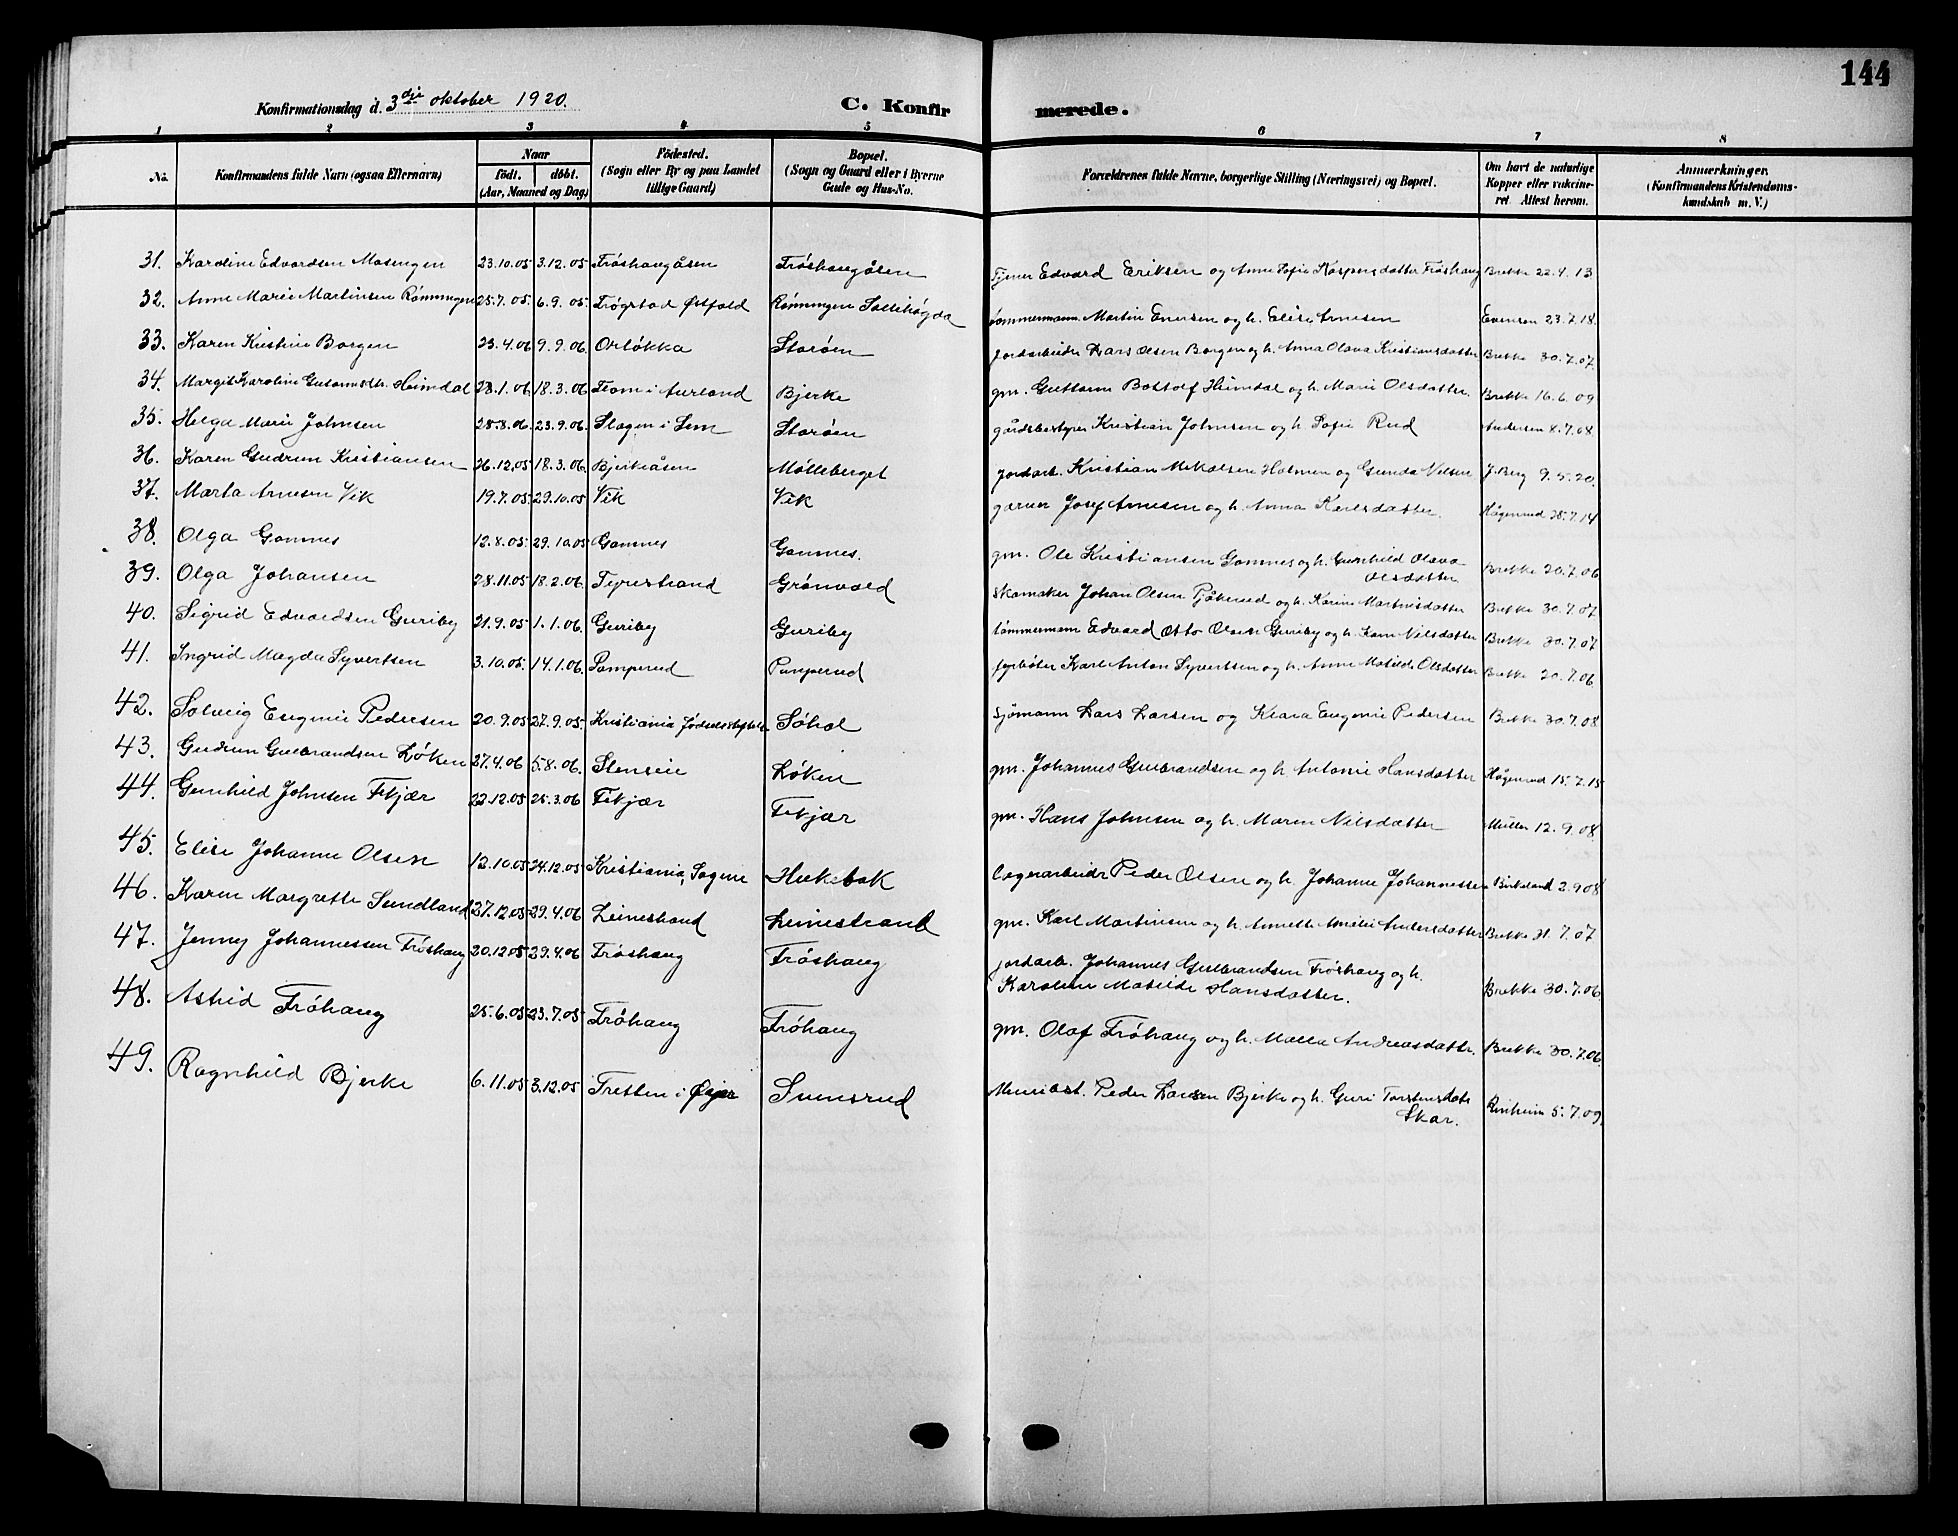 144
Konfirmationsdag d. 3die oktober 1920.
C. Konfirmerede.
1 2 3 4 5 6 7 8
No. Konfirmandens fulde Navn (ogsaa Efternavn) Naar födt. döbt. (Aar, Maaned og Dag) Födested. (Sogn eller By og paa Landet tillige Gaard) Bopæl. (Sogn og Gaard eller i Byerne Gade og Hus-No. Forældrenes fulde Navne, borgerlige Stilling (Næringsvei) og Bopæl. Om havt de naturlige Kopper eller vakcineret. Attest herom. Anmærkninger. (Konfirmandens Kristendomskundskab m. V.)
31. Karoline Edvardsen Mosengen 23.10.05 3.12.05 Fröshaugåsen Fröshaugåsen Tjener Edvard Eriksen og Anne Sofie Kaspersdatter Fröshaug Brekke 22.4.13
32. Anne Marie Martinsen Rømmingen 25.7.05. 6.9.05. Trögstad Østfold Rømmingen Sollihøgda tømmermann Martin Enersen og h. Elise Arnesen Evensen 23.7.18.
33. Karen Kristine Borgen 23.4.06 9.9.06. Orlökka Storöen jordarbeider Lars Olsen Borgen og h. Anna Olava Kristiansdatter Brekke 30.7.07.
34. Margit Karoline Gutormsdtr. Heimdal 28.1.06 18.3.06 Flom i Aurland Bjerke gm. Guttorm Bottolf Heimdal og h. Marie Olsdatter. Brekke 16.6.09
35. Helga Marie Johnsen 28.8.06. 23.9.06. Slagen i Sem Storöen gårdsbestyrer Kristian Johnsen og h. Sofie Rud Andersen 8.7.08.
36. Karen Gudrun Kristiansen 26.12.05 18.3.06. Bjerkeåsen Mölleberget jordarb. Kristian Mikalsen Holmen og Gunda Nilsen J. Berg 9.5.20.
37. Marta Arnesen Vik 19.7.05. 29.10.05 Vik Vik garver Josef Arnesen og h. Anna Karlsdatter. Hågenrud 25.7.14
38. Olga Gomnes 12.8.05. 29.10.05 Gomnes Gomnes. gm. Ole Kristiansen Gomnes og h. Gunhild Olava Olsdatter Brekke 20.7.06
39. Olga Johansen 28.11.05 18.2.06. Tyrestrand Grönvold Skomaker Johan Olsen Pjåkerud og h. Karine Martinsdatter Brekke 30.7.07
40. Sigrid Edvardsen Guriby 21.9.05 1.1.06. Guriby Guriby tömmermann Edvard Otto Olsen Guriby og h. Karen Nilsdatter Brekke 30.7.07
41. Ingrid Magda Syvertsen 3.10.05. 14.1.06. Pamperud Pamperud fyrböter Karl Anton Syvertsen og h. Anne Matilde Olsdatter Brekke 20.7.06.
42. Solveig Eugenie Pedersen 20.9.05 27.9.05. Kristiania Födselsstiftelse Söhol Sjömann Lars Larsen og Klara Eugenie Pedersen Brekke 30.7.08.
43. Gudrun Gulbrandsen Löken 27.4.06 5.8.06. Stensvei Löken gm. Johannes Gulbrandsen og h. Antonie Hansdatter Hågenrud 15.7.15
44. Gunhild Johnsen Fekjær 22.12.05 25.3.06 Fekjær Fekjær gm. Hans Johnsen og h. Maren Nilsdatter Müller 12.9.08.
45. Elise Johanne Olsen 12.10.05 24.12.05 Kristiania, Sagene Hukebak lagerarbeider Peder Olsen og h. Johanne Johannesen Birkeland 2.9.08
46. Karen Margrethe Sundland 27.12.05 29.4.06 Leinestrand Leinestrand gm. Karl Martinsen og h. Annette Amalie Andersdatter Brekke 31.7.07
47. Jenney Johannessen Fröshaug 20.12.05 29.4.06 Fröshaug Fröshaug jordarb. Johannes Gulbrandsen Fröshaug og h. Karoline Matilde Hansdatter. Brekke 30.7.06.
48. Astrid Fröhaug 25.6.05 23.7.05 Fröhaug Fröhaug gm. Olaf Fröhaug og h. Malla Andreasdatter. Brekke 30.7.06
49. Ragnhild Bjerke 6.11.05 3.12.05 Tretten i Øyer Svensrud Meieribest. Peder Larsen Bjerke og h. Guri Torstensdatr. Skar. Reinheim 5.7.09.